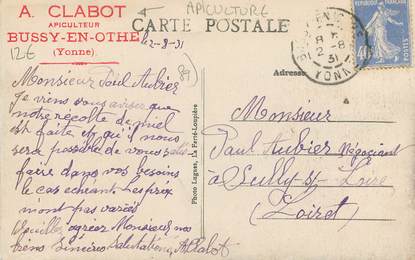 A. CLABOT
APICULTEUR
BUSSY-EN-OTHE
(Yonne)
12€
APICULTURE
CARTE POSTALE
12-8-31
89
Adresse
Photo Luguet, La Ferté-Loupière
RÉPUBLIQUE FRANÇAISE
YONNE
Monsieur Paul Aubier
Je viens vous aviser que
notre récolte de miel
est faite et qu'il nous
sera possible de vous
faire dans vos besoins
le cas échéant. Les prix
n'ont pas variés
Veuillez agréer Monsieur nos
biens sincères salutations, A Clabot
Monsieur
Paul Aubier Négociant
à Sully-St-Loire
(Loiret)